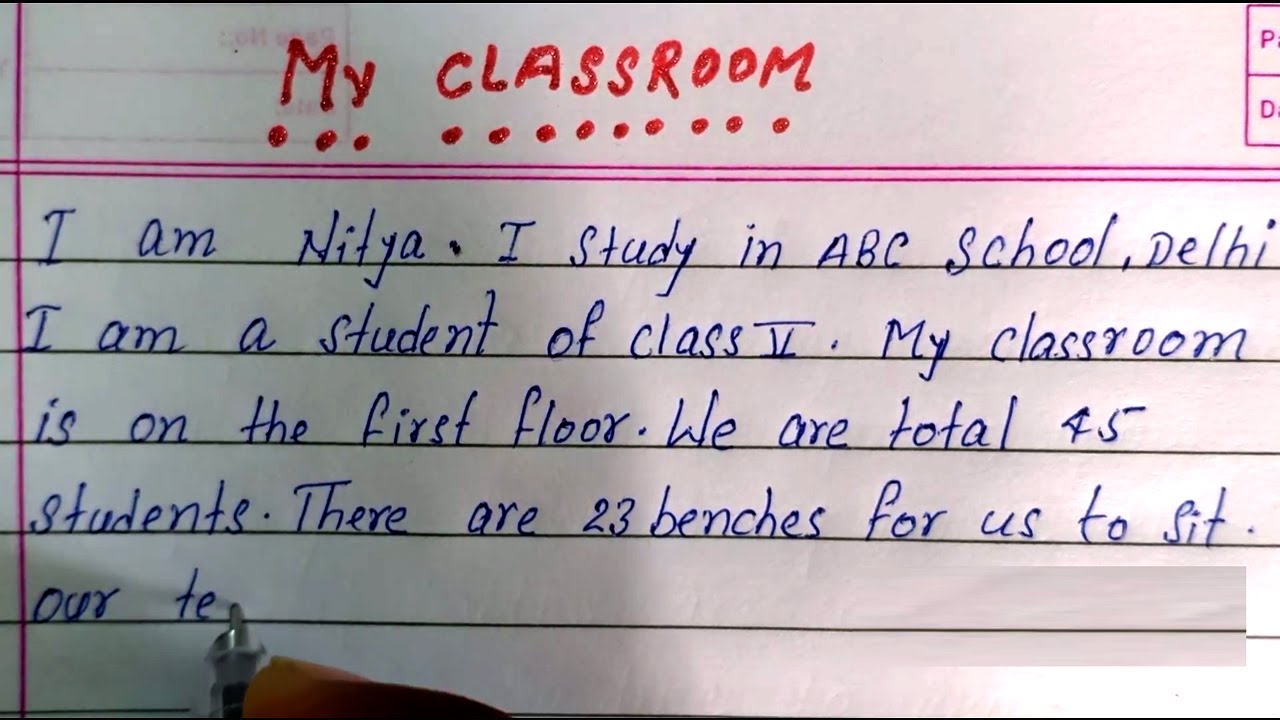 My CLASSROOM
I am Nitya. I study in ABC School, Delhi
I am a student of class V. My classroom
is on the first floor. We are total 45
students. There are 23 benches for us to sit.
our te